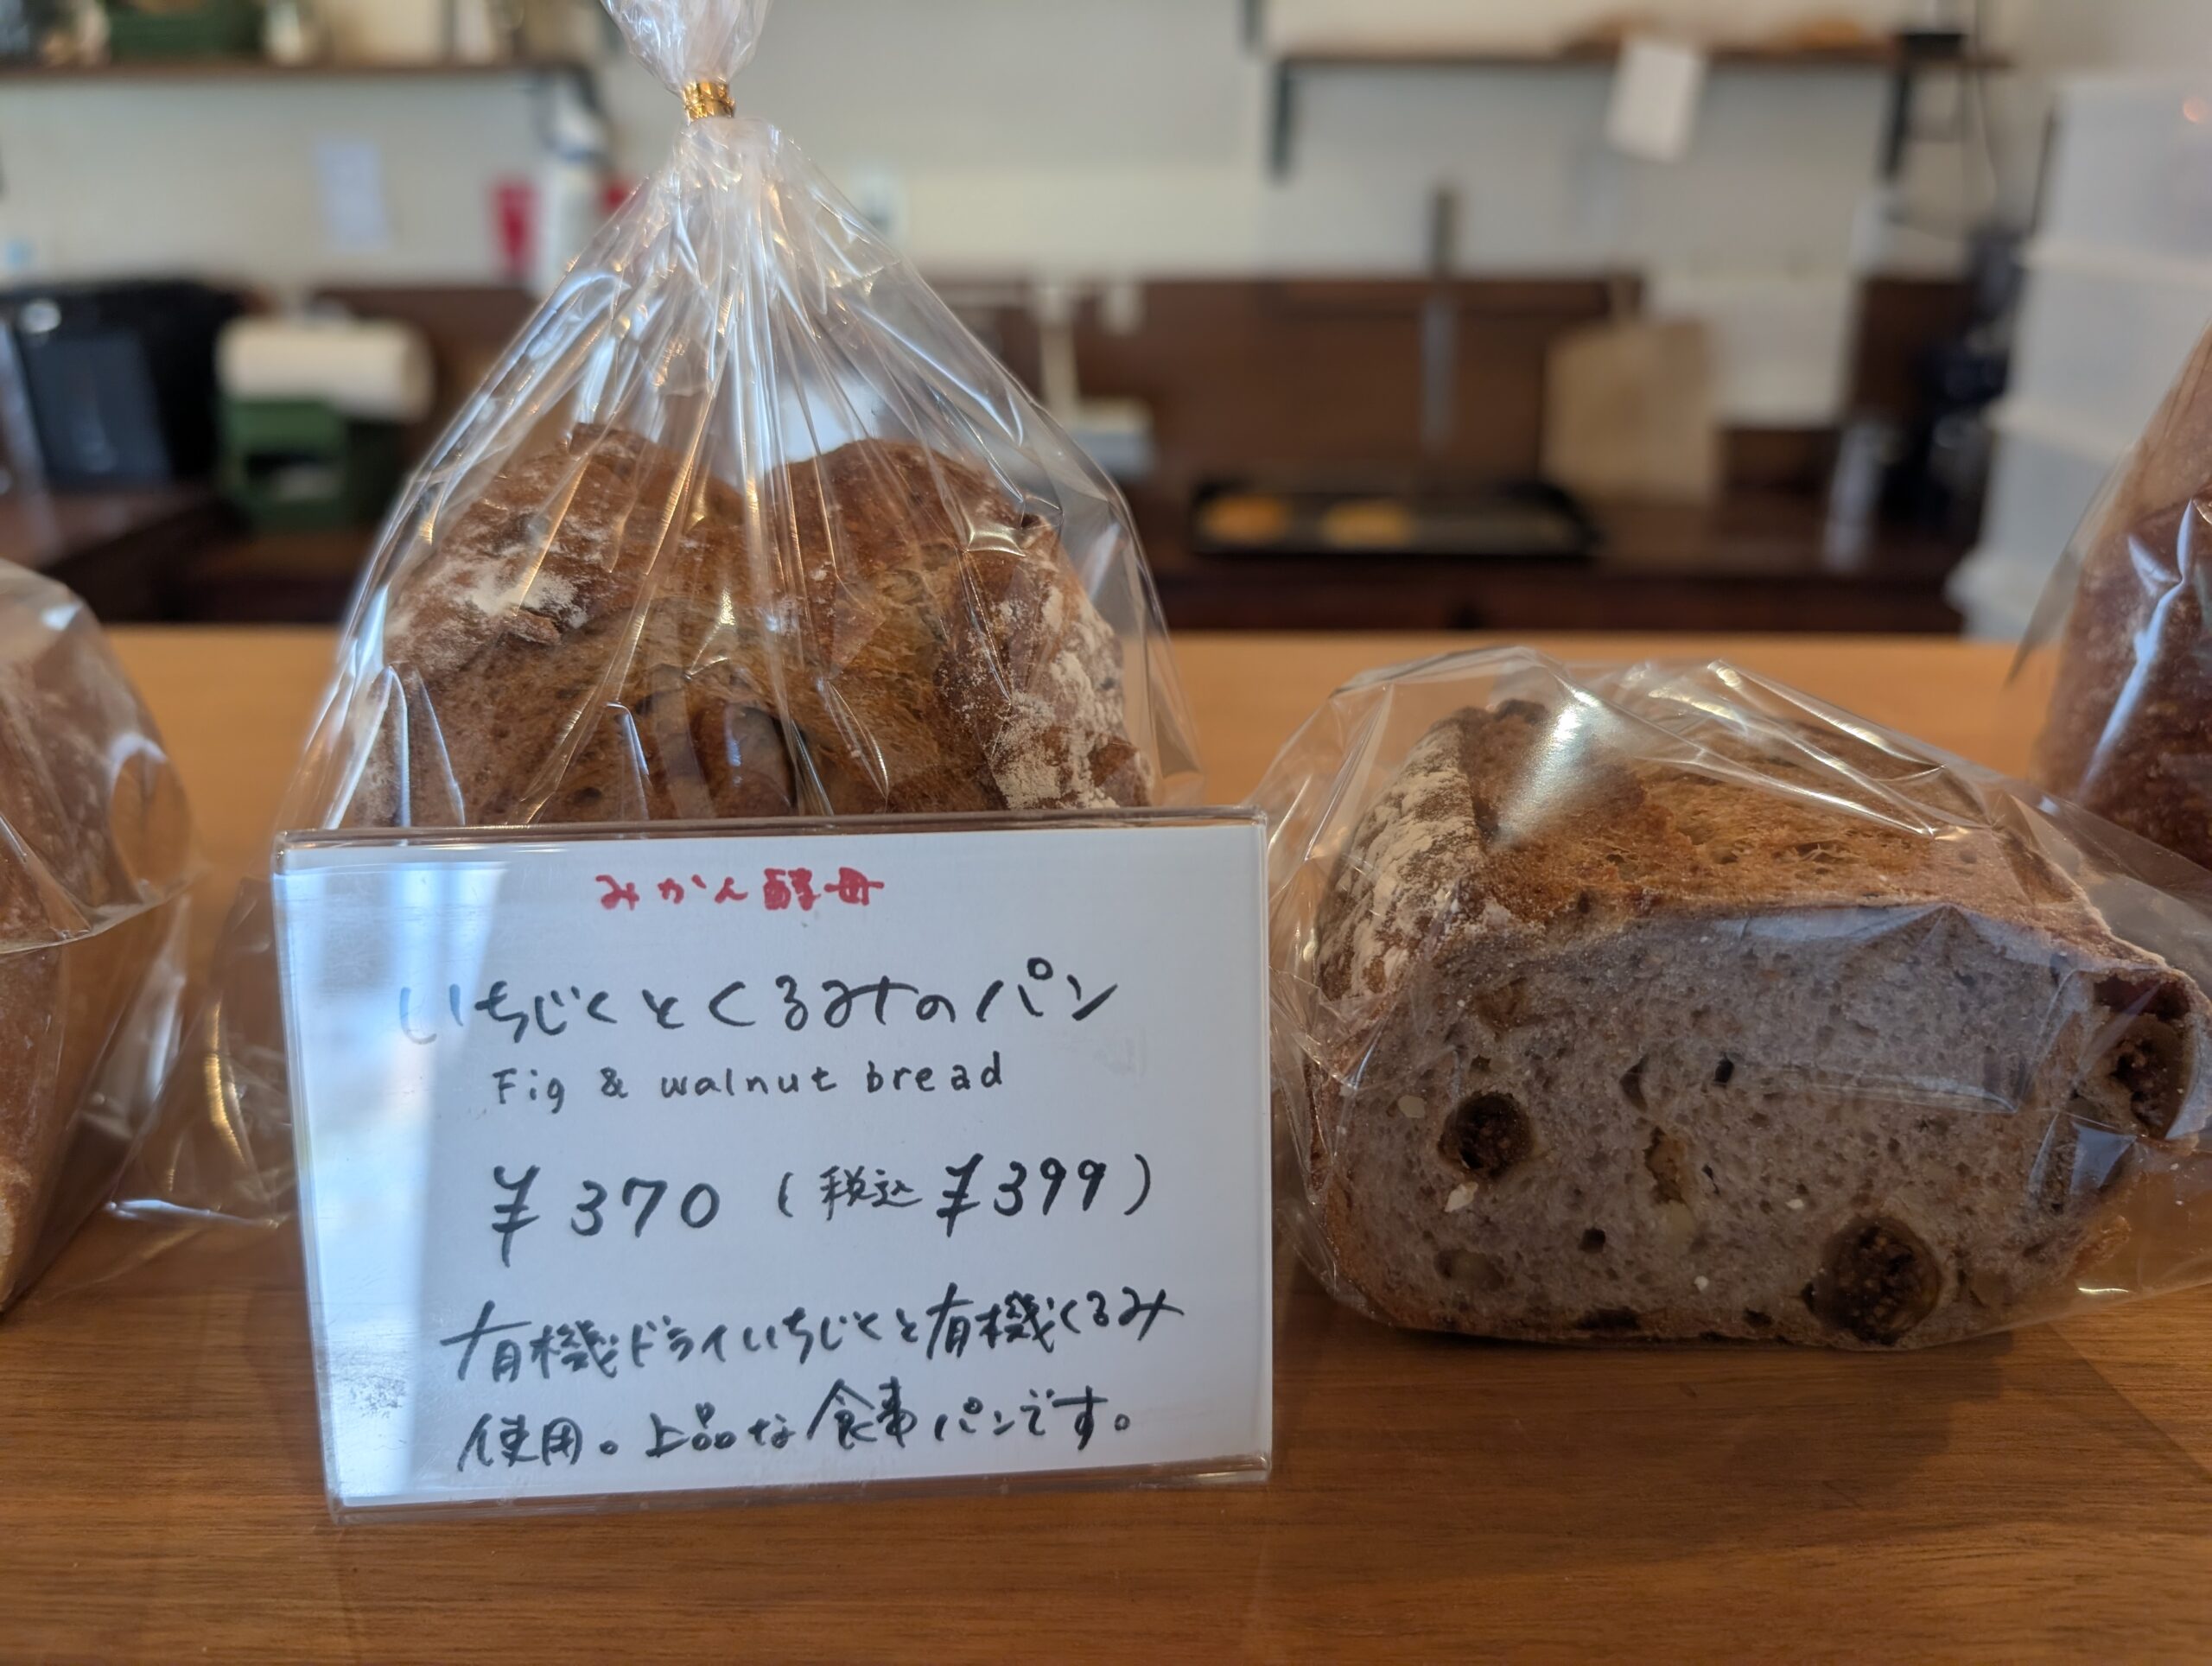 みかん酵母
いちじくとくるみのパン
Fig & walnut bread
¥370 (税込¥399)
有機ドライいちじくと有機くるみ
使用。上品な食事パンです。